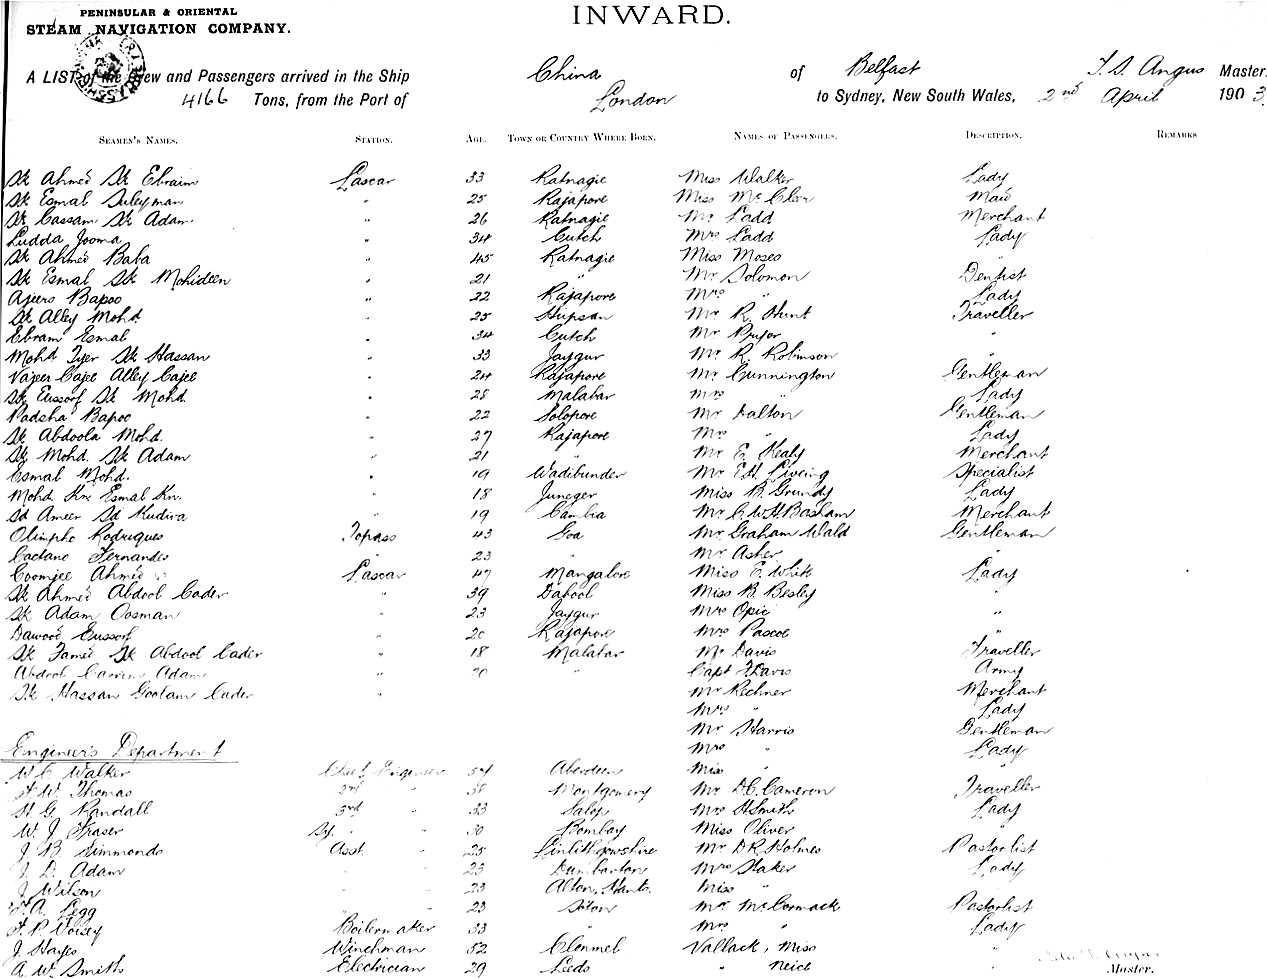 PENINSULAR & ORIENTAL
STEAM NAVIGATION COMPANY.
INWARD.
A LIST of the Crew and Passengers arrived in the Ship China of Belfast T. S. Angus Master
4166 Tons, from the Port of London to Sydney, New South Wales, 2nd April 1903.
SEAMEN'S NAMES. STATION. AGE. TOWN OR COUNTRY WHERE BORN. NAMES OF PASSENGERS. DESCRIPTION. REMARKS
Sk Ahmed Sk Ebraim Lascar 33 Ratnagie Miss Walker Lady
Sk Esmal Suleyman " 25 Rajapore Miss McCleer Maid
Sk Cassam Sk Adam " 26 Ratnagie Mr Ladd Merchant
Ludda Jooma " 34 Cutch Mrs Ladd Lady
Sk Ahmed Baba " 45 Ratnagie Miss Moses "
Sk Esmal Sk Mohideen " 21 " Mr Solomon Dentist
Bapoo " 22 Rajapore Mrs " Lady
Sk Alley Mohd. " 25 Mr R. Hunt Traveller
Ebram Esmal " 34 Cutch Mr Pryor "
Mohd Sk Hassan " 33 Jaygur Mr R. Robinson "
Vajeer Cajee Alley Cajee " 24 Rajapore Mr Gunnington Gentleman
Sk Eussorf Sk Mohd. " 28 Malabar Mrs " Lady
Padsha Bapoo " 22 Solopore Mr Dalton Gentleman
Sk Abdoola Mohd. " 27 Rajapore Mrs " Lady
Sk Mohd. Sk Adam " 21 " Mr E. Healy Merchant
Esmal Mohd. " 19 Wadibunder Mr E.H. Liveing Specialist
Mohd Kn Esmal Kn. " 18 Juneger Miss B. Grundy Lady
Sd Ameer Sd Kudira " 19 Cambia Mr C. W. H. Basham Merchant
Olimpho Rodrigues Topass 43 Goa Mr Graham Wald Gentleman
Caetano Fernandes " 23 " Mr Asher "
Coomjee Ahmed Lascar 47 Mangalore Miss E. White Lady
Sk Ahmed Abdool Cader " 39 Dabool Miss B. Besley "
Sk Adam Oosman " 23 Jaygur Mrs Opie "
Dawood Eussorf " 20 Rajapore Mrs Pascoe "
Sk Famed Sk Abdool Cader " 18 Malabar Mr Davis Traveller
Abdool Carrim Adam " 20 " Capt F Davis Army
Sk Hassan Goolam Cader " Mr Rechner Merchant
Mrs " Lady
Mr Harris Gentleman
Engineer's Department Mrs " Lady
W. C. Walker Chief Engineer 54 Aberdeen Miss " "
F. W. Thomas 2nd " 38 Montgomery Mr D. C. Cameron Traveller
H. G. Randall 3rd " 33 Salop Mrs H Smith Lady
W. J. Fraser " " 30 Bombay Miss Oliver "
J. B. Simmonds Asst. " 25 Linlithgowshire Mr D R. Holmes Pastorlist
J. D. Adam " " 23 Dumbarton Mrs Staker Lady
J. Wilson " " 23 Alton, Hants. Miss " "
F. A. Legg " " 23 Mr McCormack Pastorlist
F. P. Voisey Boilermaker 33 " Mrs " Lady
J. Hayes Winchman 52 Clonmel Vallack, Miss "
A. W. Smith Electrician 29 Leeds " Neice
Master.